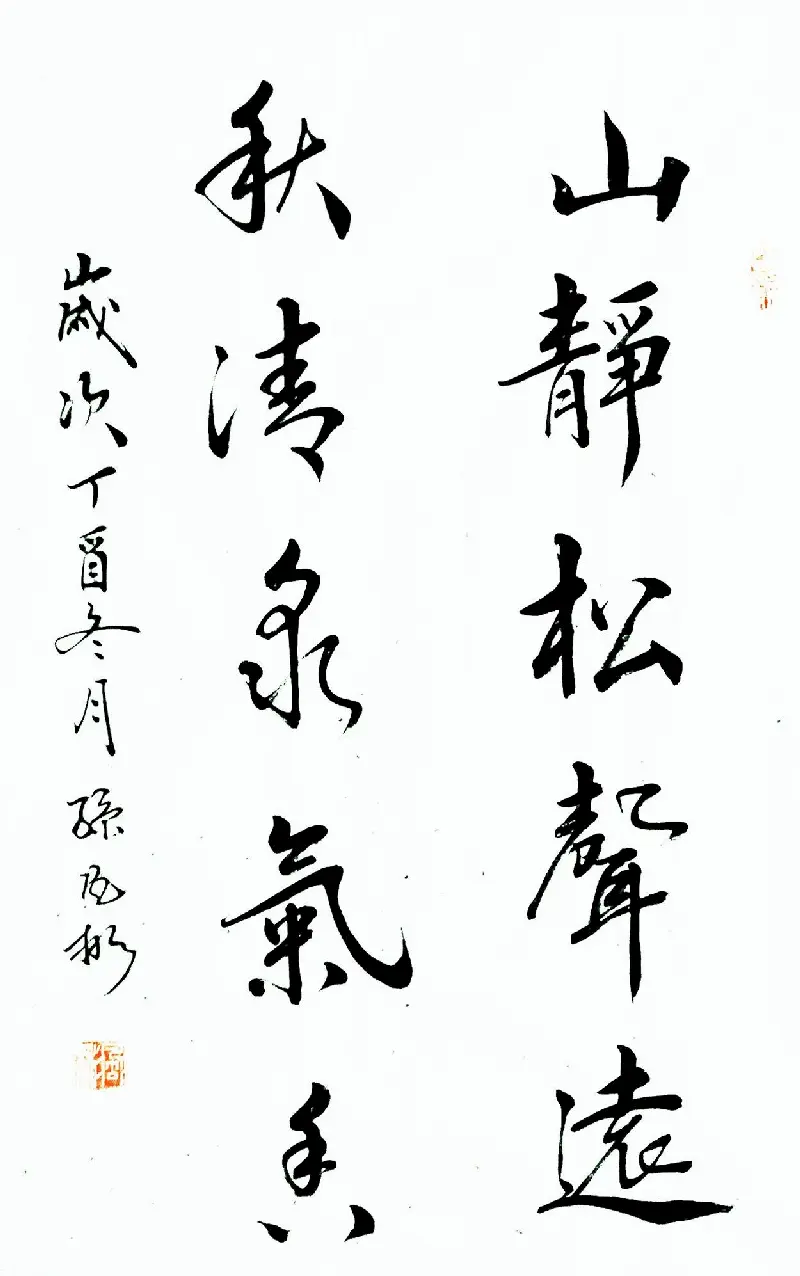 山靜松聲遠
秋清泉氣香
歲次丁酉冬月孫